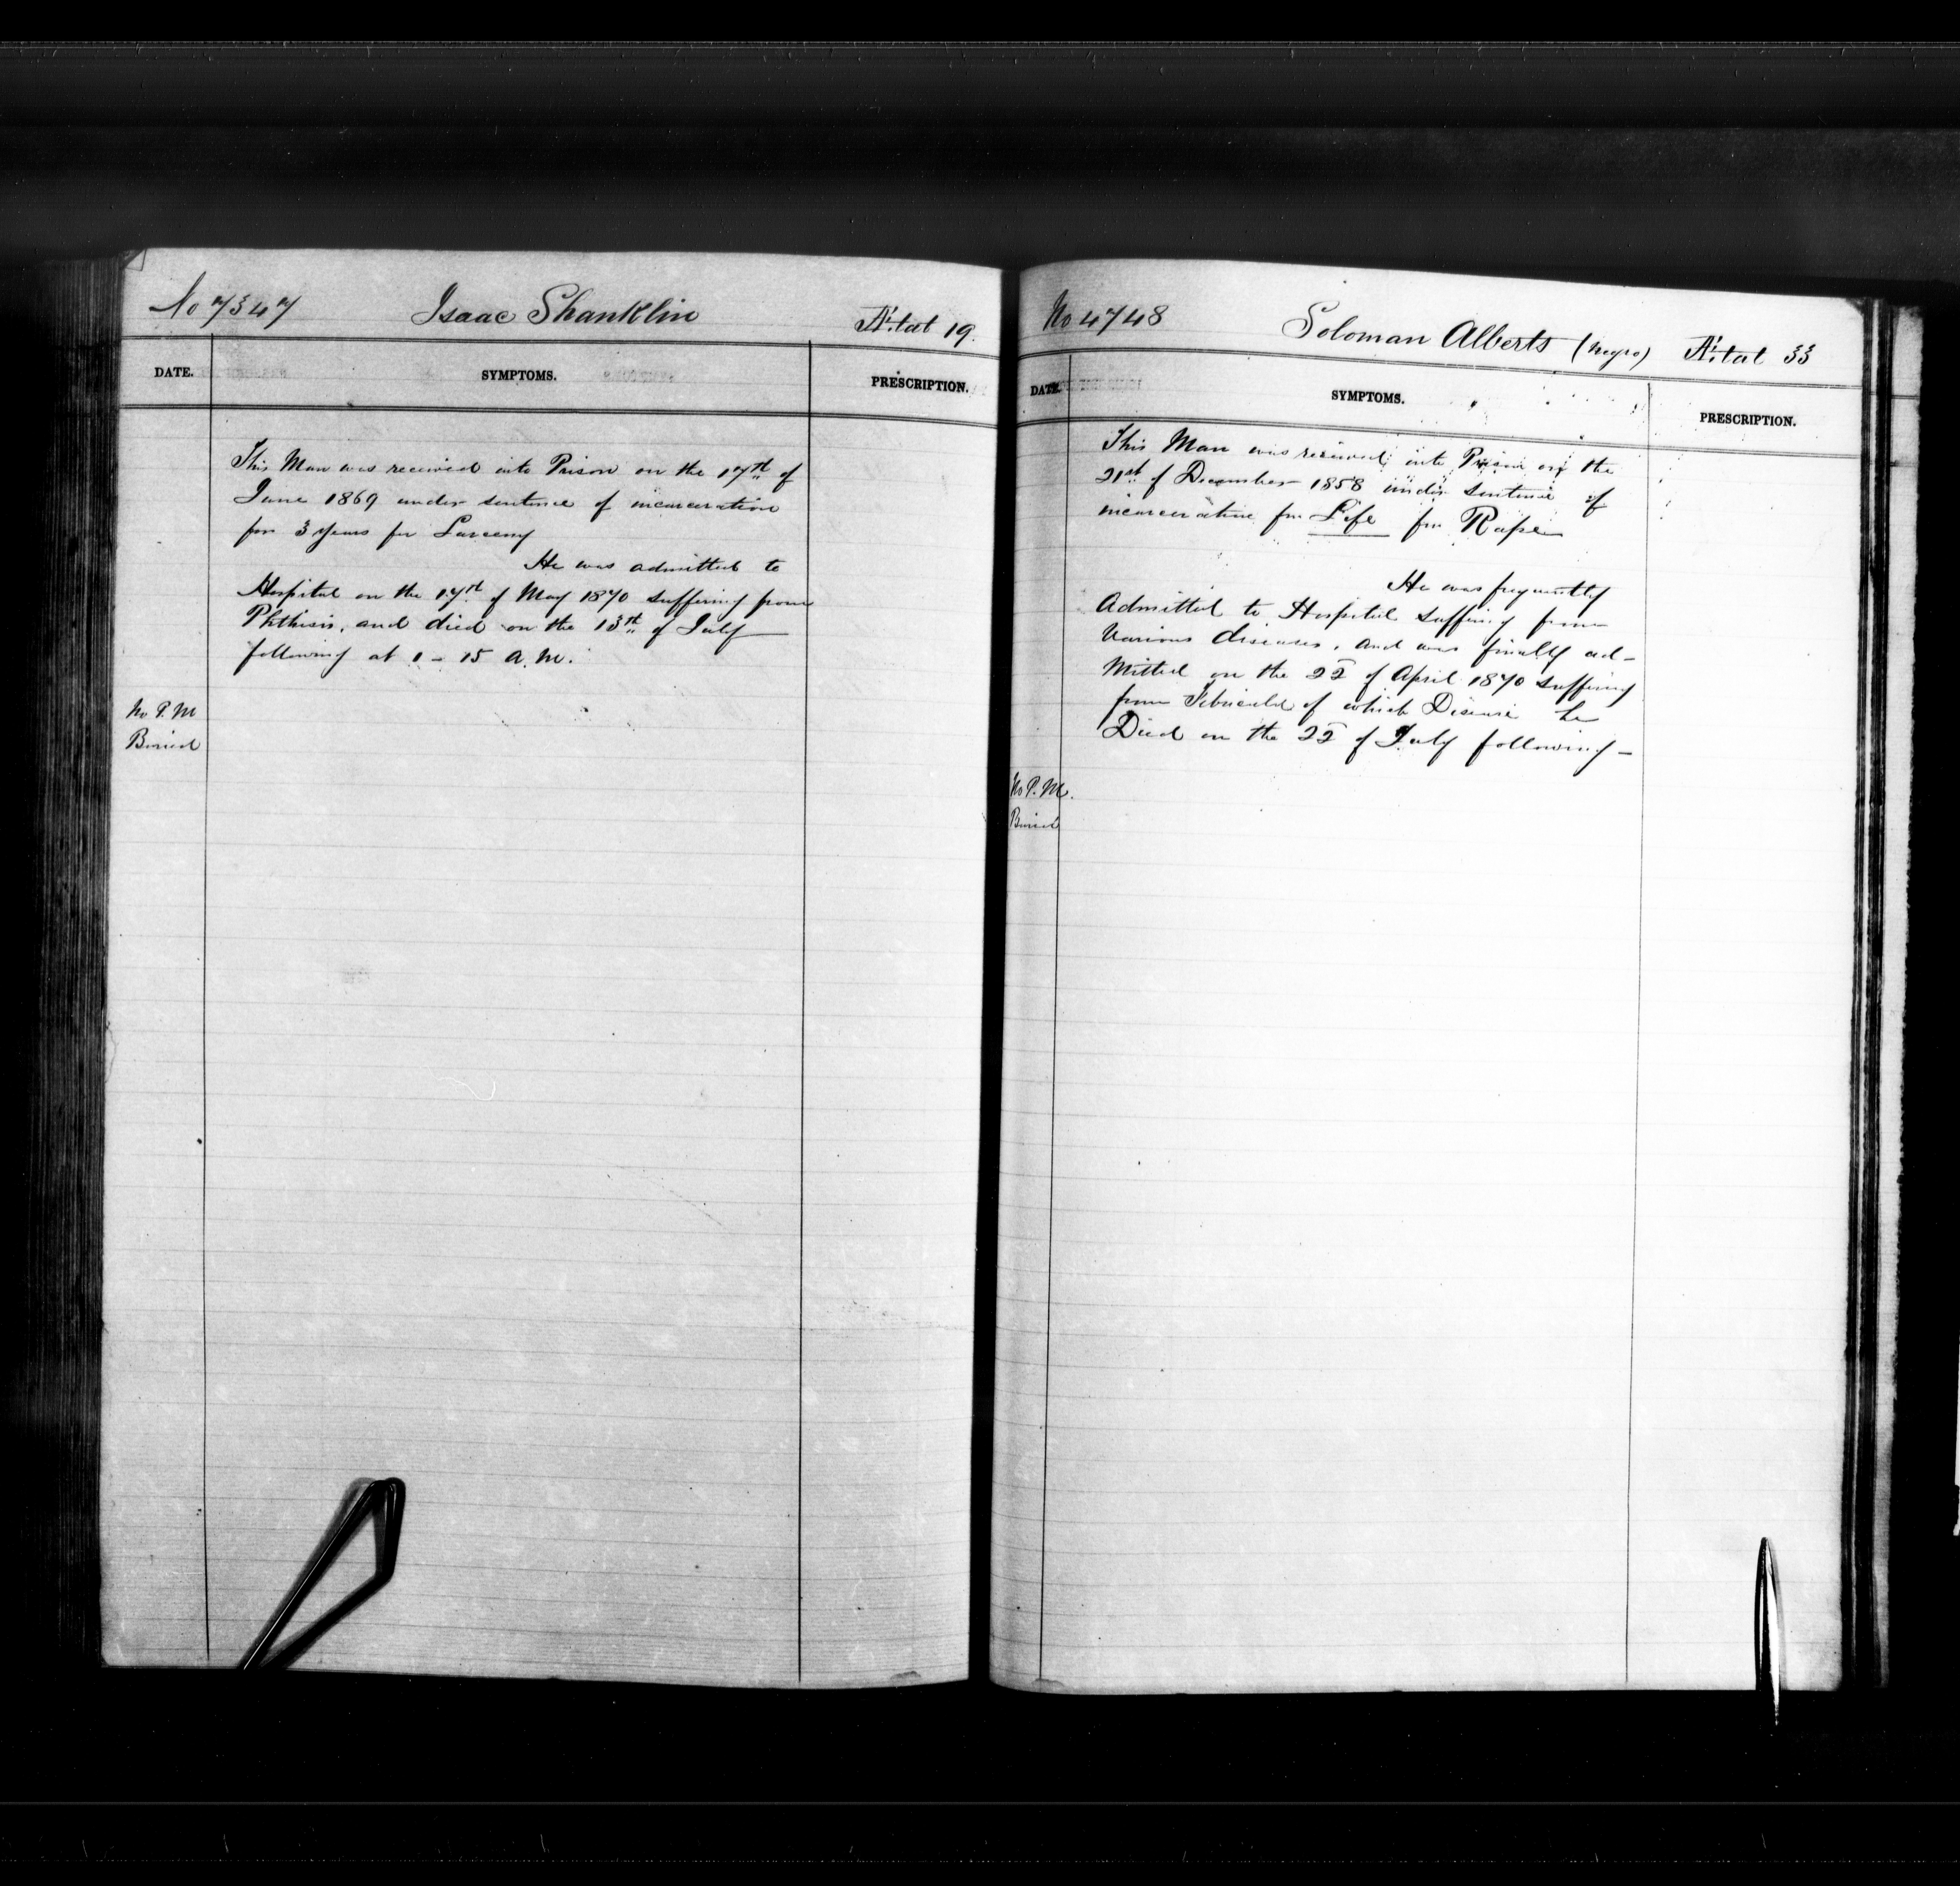 No 7347 Isaac Shanklin Ætat 19.
DATE. SYMPTOMS. PRESCRIPTION.
This Man was received into Prison on the 17th of
June 1869 under sentence of incarceration
for 3 years for Larceny
He was admitted to
Hospital on the 17th of May 1870 suffering from
Phthisis, and died on the 13th of July
following at 1 - 15 A.M.
No P.M
Buried
No 4748 Soloman Alberts (Negro) Ætat 33
DATE. SYMPTOMS. PRESCRIPTION.
This Man was received into Prison on the
21st of December 1858 under sentence of
incarceration for Life for Rape
He was frequently
Admitted to Hospital suffering from
Various diseases, and was finally ad-
mitted on the 22 of April 1870 suffering
from of which Disease he
Died on the 22 of July following -
No P.M.
Buried